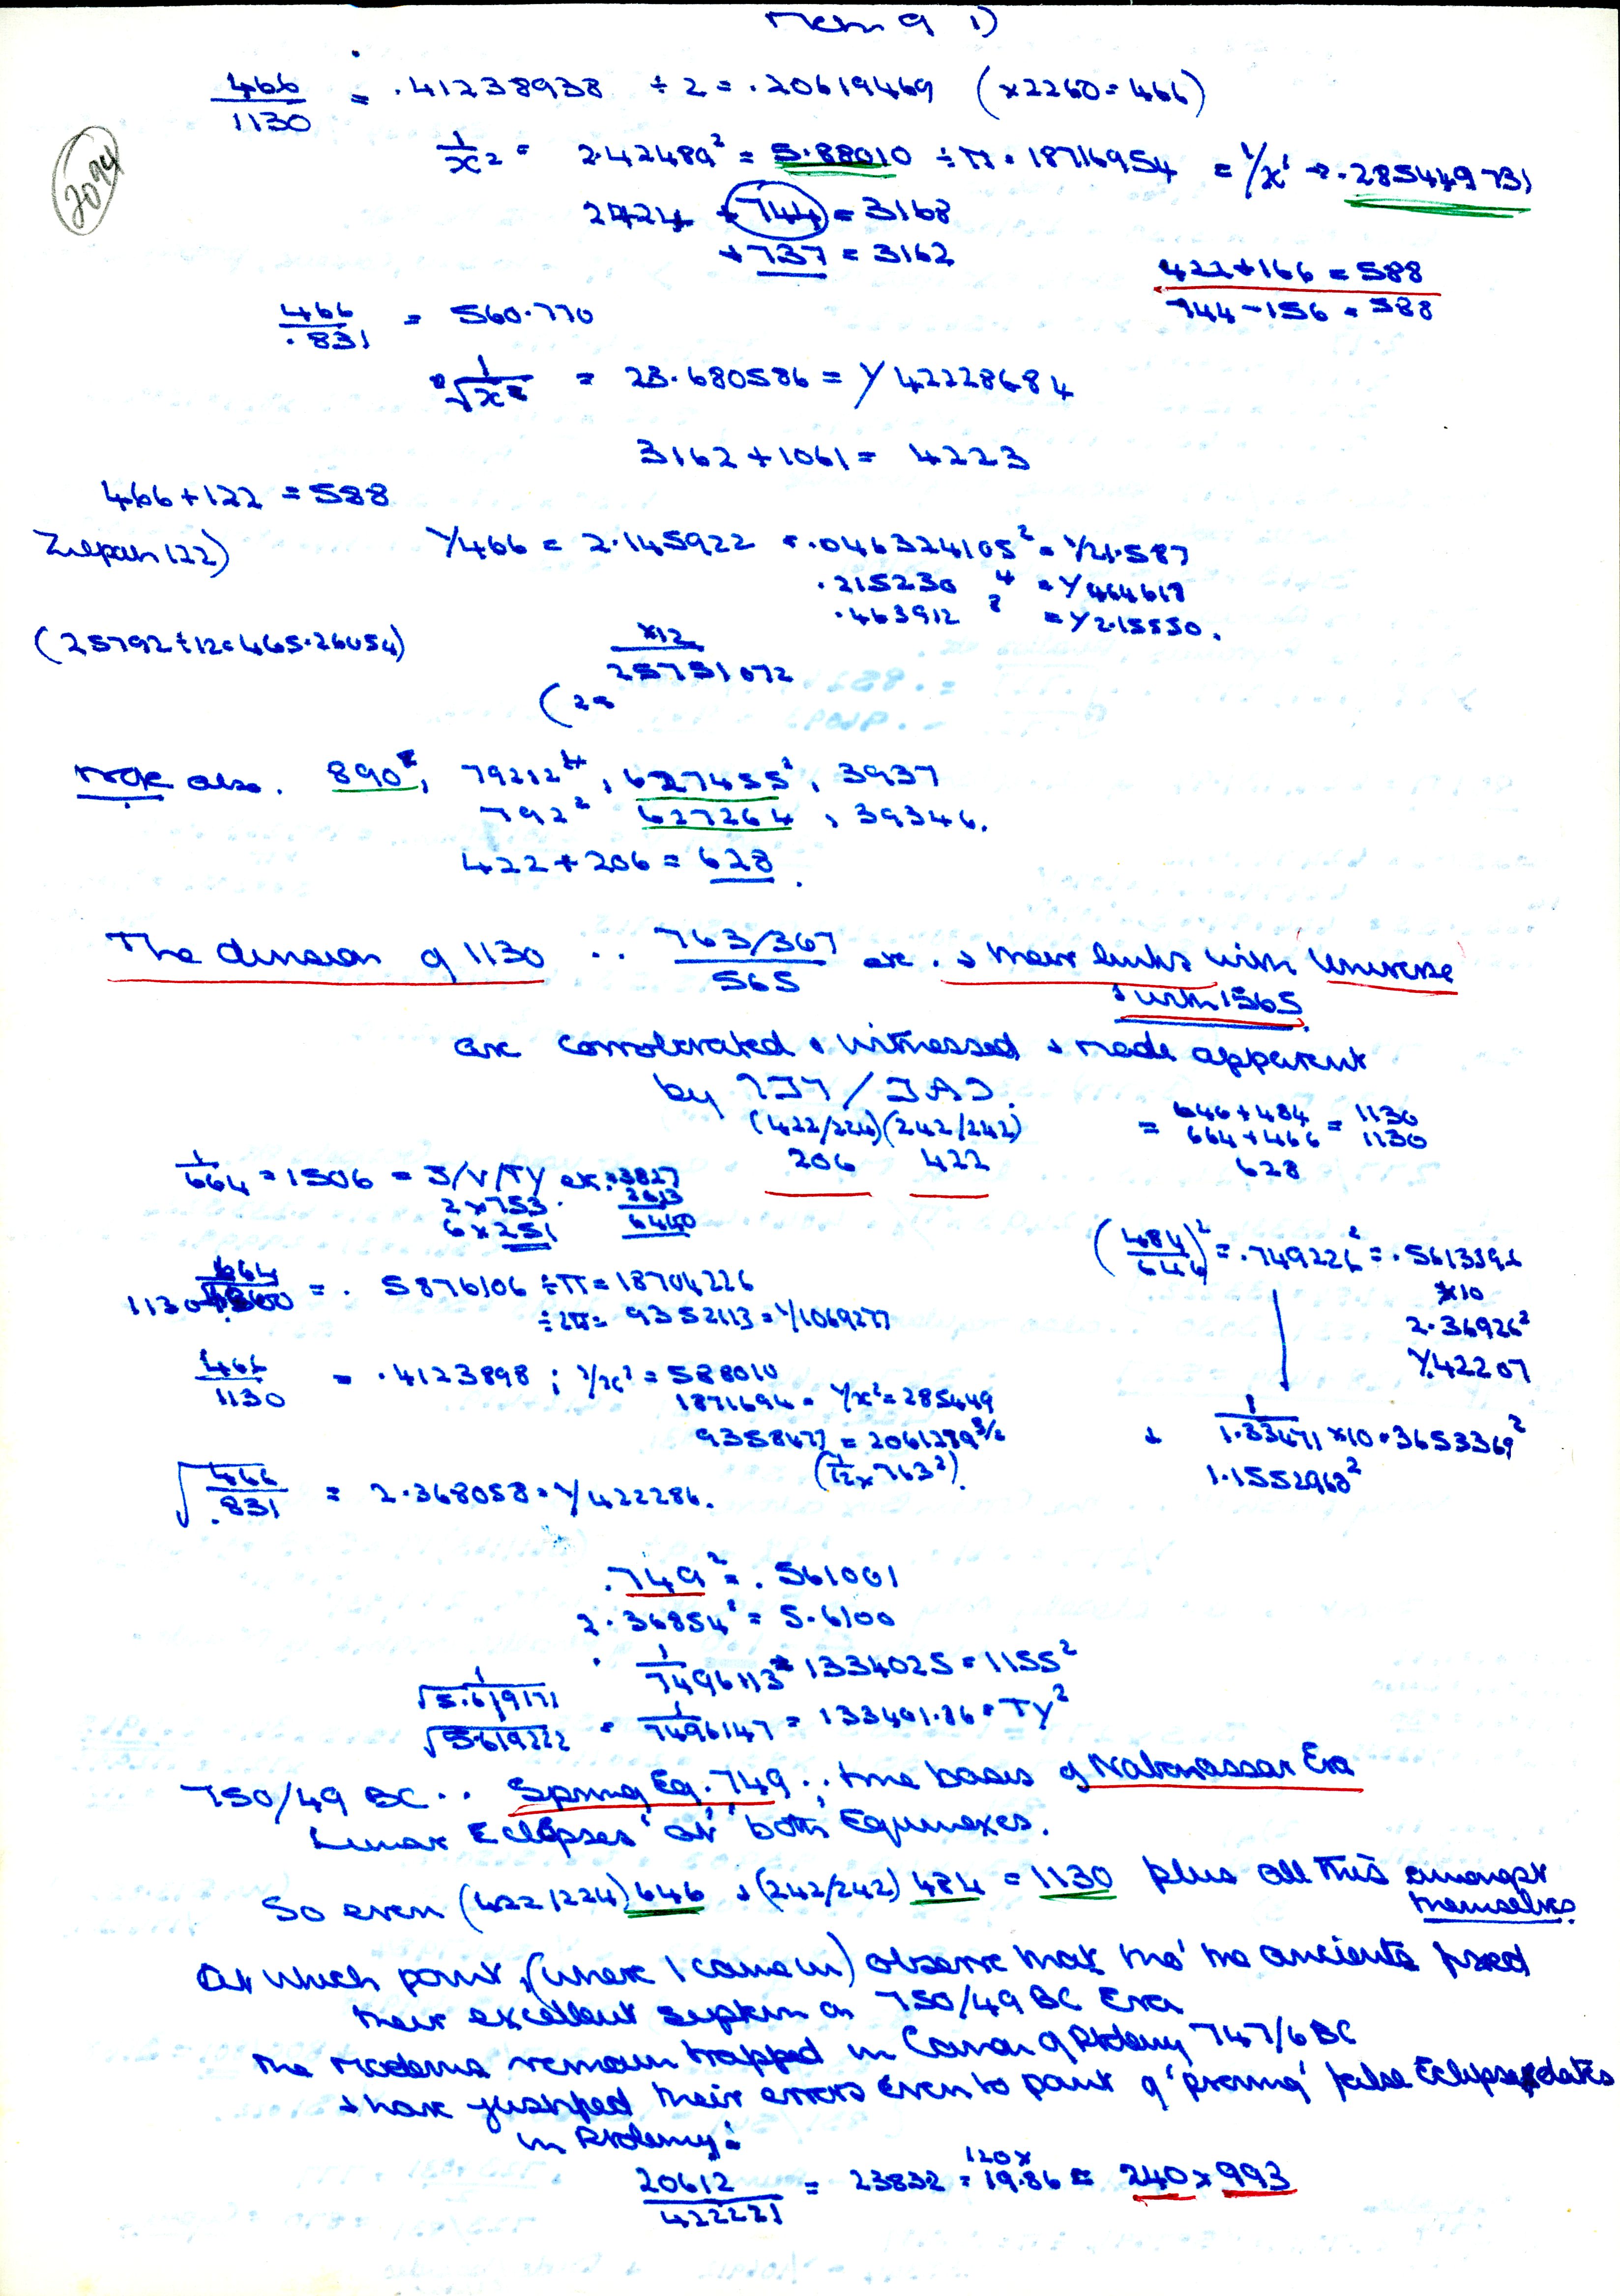 1)
466/1130 = .41238938 ÷ 2 = .20619469 (×2260 = 466)
2094
1/x² = 2.42489² = 5.88010 ÷ π = 18716954 = 1/x² → .285449731
2424 + 744 = 3168
+ 737 = 3162
422 + 166 = 588
744 − 156 = 588
466/.831 = 560.770
= 23.680586 = 1/42228684
3162 + 1061 = 4223
466 + 122 = 588
122)
1/466 = 2.145922 = .046324105² = 1/21.587
.215230 ⁴ = 1/464618
.463912 ⁸ = 1/2.15550.
(25792 ÷ 12 = 465.26054)
×12
25751072
(2
note also. 890², 79212⁴, 627455², 3937
792² 627264, 39346.
422 + 206 = 628.
The division of 1130 .. 763/367/565 etc. & their links with Universe
& with 1565.
are corroborated & witnessed & made apparent
by
(422/224) (242/242)
= 646 + 484 = 1130
664 + 466 = 1130
206 422
628
1/664 = 1506 = S/V/TY etc. 3827
2 × 753. 2613
6 × 251 6440
(484/646)² = .749226² = .5613396
×10
2.36926²
1/42207
664/1130 = .5876106 ÷ π = 18704226
÷ 2π = 9352113 = 1/1069277
466/1130 = .4123898 ; 1/x² = 588010
1871694 = 1/x² = 285449
9358477 = 2061279 3/2
(1/12 × 763²).
& 1/1.33471 ×10 = 3653369²
1.1552960²
√466/.831 = 2.368058 = 1/422286.
.749² = .561001
2.36854² = 5.6100
1/7496113 = 1334025 = 1155²
1/√5.619171
√5.619222 = 1/7496147 = 133401.86 = TY²
750/49 BC .. Spring Eq. 749 .. true basis of Nabonassar Era
Lunar Eclipses 'at' both Equinoxes.
So even (422/224) 646 & (242/242) 484 = 1130 plus all this amongst
themselves.
At which point, (where I came in) observe that tho' the ancients fixed
their excellent system on 750/49 BC Era
the moderns remain trapped in Canon of Ptolemy 747/6 BC
& have justified their errors even to point of 'proving' false Eclipse dates
in Ptolemy:
20612/422221 = 23832 = 120× 19.86 = 240 × 993